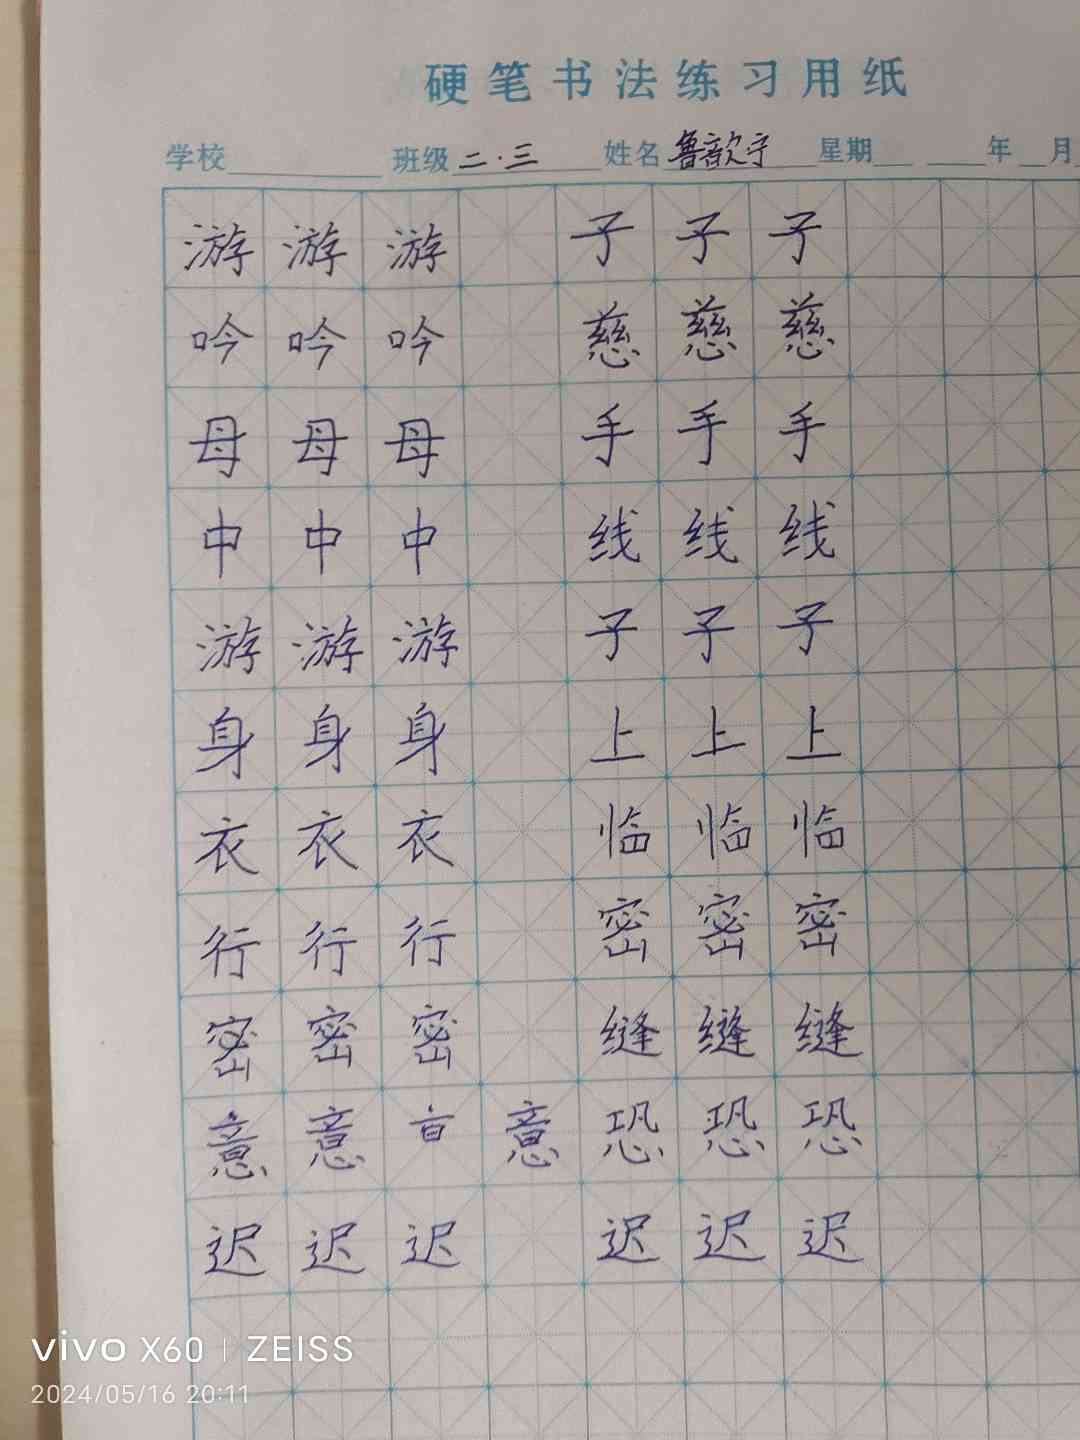 硬笔书法练习用纸
学校 班级 二·三 姓名 鲁歆宁 星期 年 月
游 游 游 子 子 子
吟 吟 吟 慈 慈 慈
母 母 母 手 手 手
中 中 中 线 线 线
游 游 游 子 子 子
身 身 身 上 上 上
衣 衣 衣 临 临 临
行 行 行 密 密 密
密 密 密 缝 缝 缝
意 意 意 恐 恐 恐
迟 迟 迟 迟 迟 迟
vivo X60 | ZEISS
2024/05/16 20:11